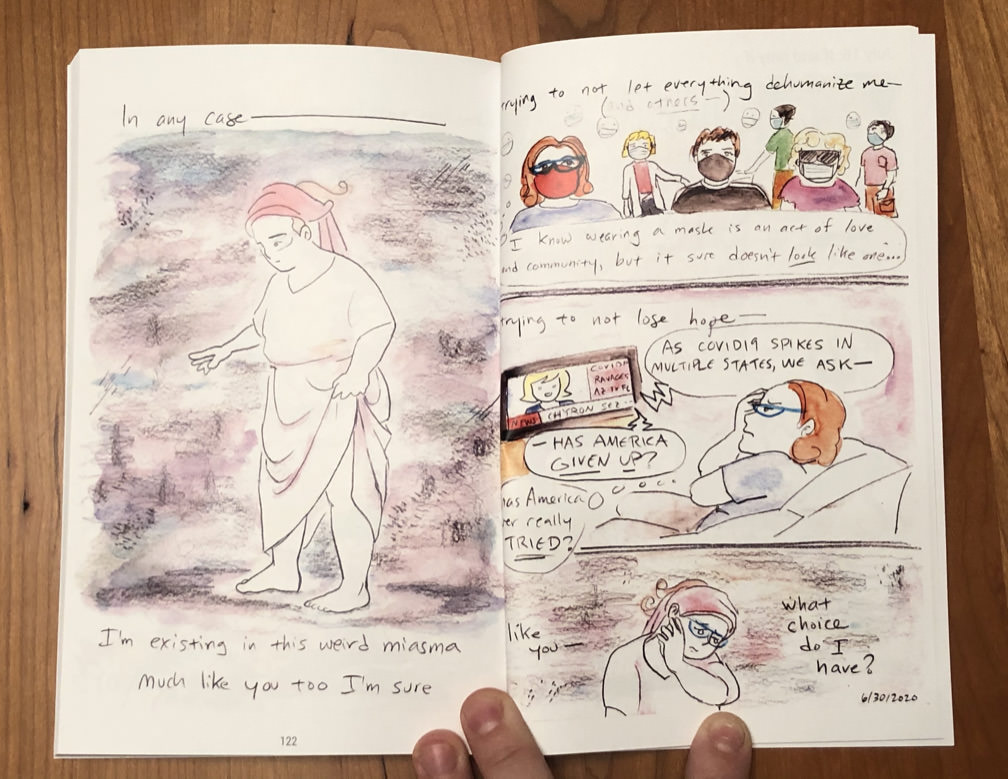 In any case
I'm existing in this weird miasma
Much like you too I'm sure
122
rying to not let everything dehumanize me—
(and others—)
I know wearing a mask is an act of love
nd community, but it sure doesn't look like one...
rying to not lose hope—
AS COVID19 SPIKES IN
MULTIPLE STATES, WE ASK—
COVID
RAVAGES
AZ TX FL
NEWS CHYRON SEZ
—HAS AMERICA
GIVEN UP?
has America
er really
TRIED?
like
you—
what
choice
do I
have?
6/30/2020